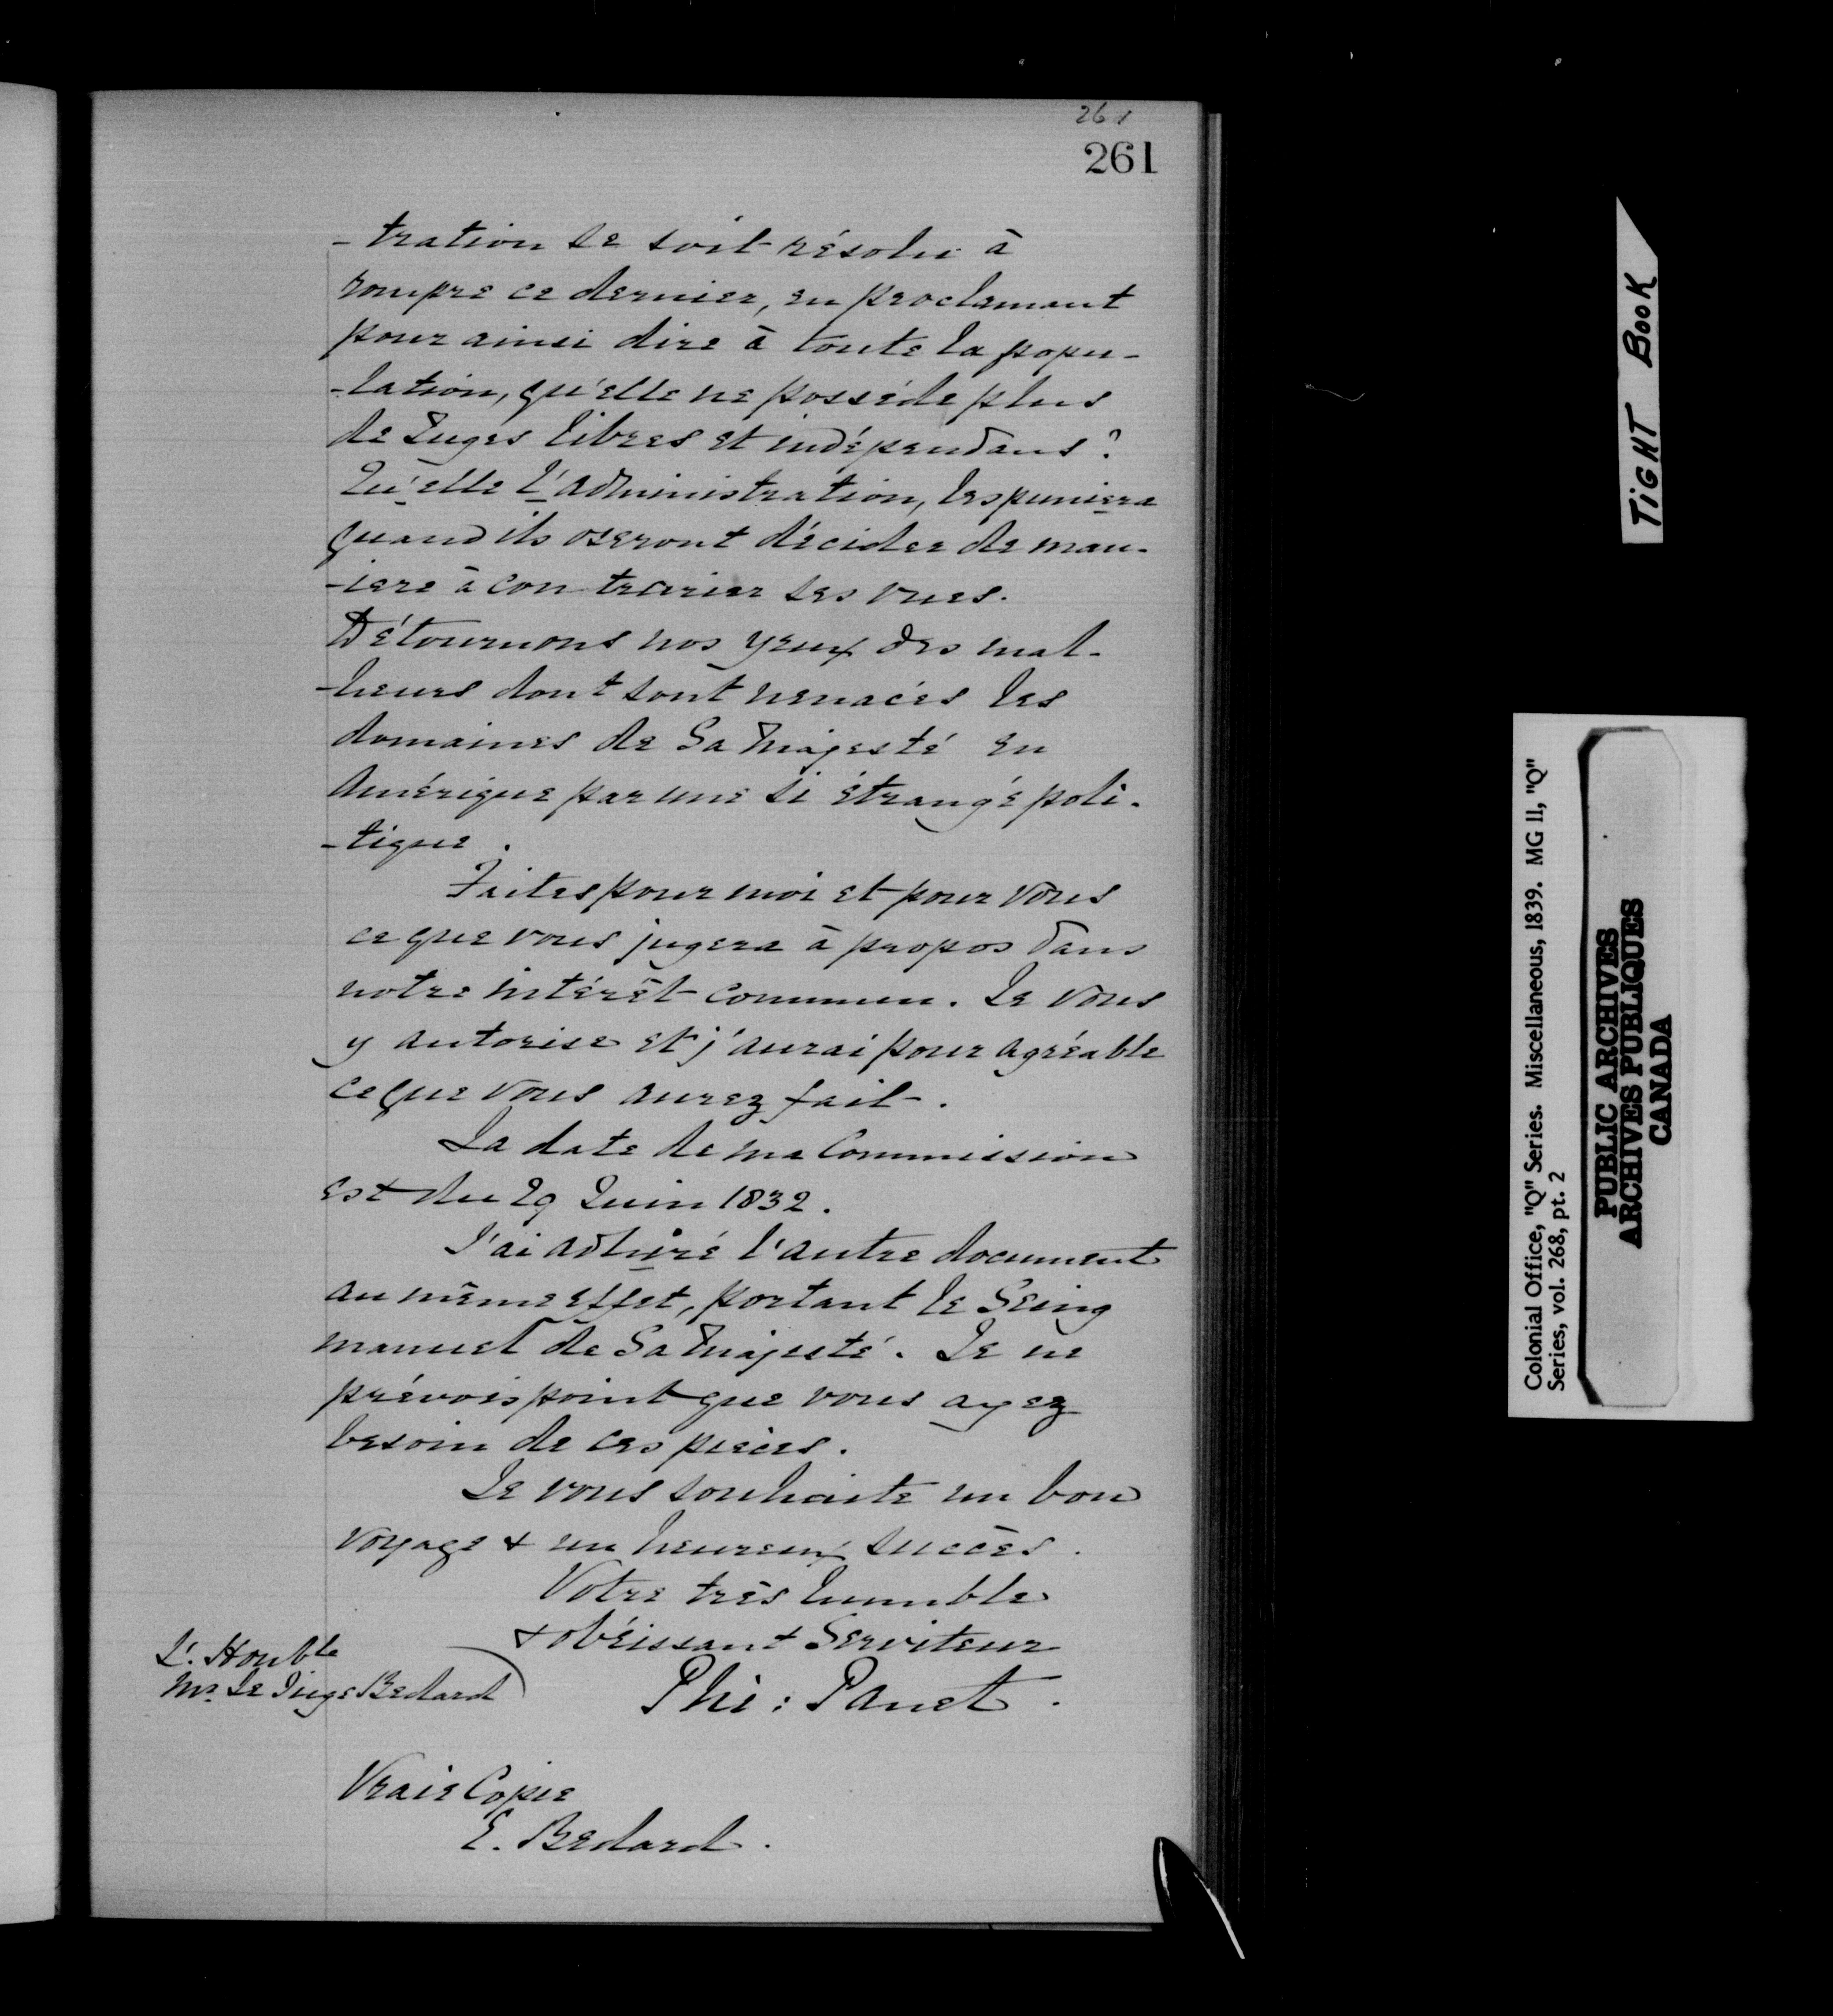 261
261
-tration se soit résolu à
rompre ce dernier, en proclamant
pour ainsi dire à toute la popu-
-lation, qu'elle ne possède plus
de Juges libres et indépendans?
Qu'elle l'administration, les puniera
quand ils oseront décider de man-
-iere à contrarier ses vues.
Détournons nos yeux des mal-
-heurs dont sont menacés les
domaines de Sa Majesté en
Amérique par une si étrange poli-
-tique.
Faites pour moi et pour vous
ce que vous jugera à propos dans
notre intérêt commun. Je vous
y autorise et j'aurai pour agréable
ce que vous aurez fait.
La date de ma Commission
est du 29 Juin 1832.
J'ai l'autre document
au même effet, portant le Seing
manuel de Sa Majesté. Je ne
prévois point que vous ayez
besoin de ces pièces.
Je vous souhaite un bon
voyage & un heureux succès.
Votre très humble
& obéissant Serviteur
L'. Honble
Mr. Le Juge Bedard
Phi: Panet.
Vraie Copie
E. Bedard.
TIGHT BOOK
Colonial Office, "Q" Series. Miscellaneous, 1839. MG 11, "Q"
Series, vol. 268, pt. 2
PUBLIC ARCHIVES
ARCHIVES PUBLIQUES
CANADA